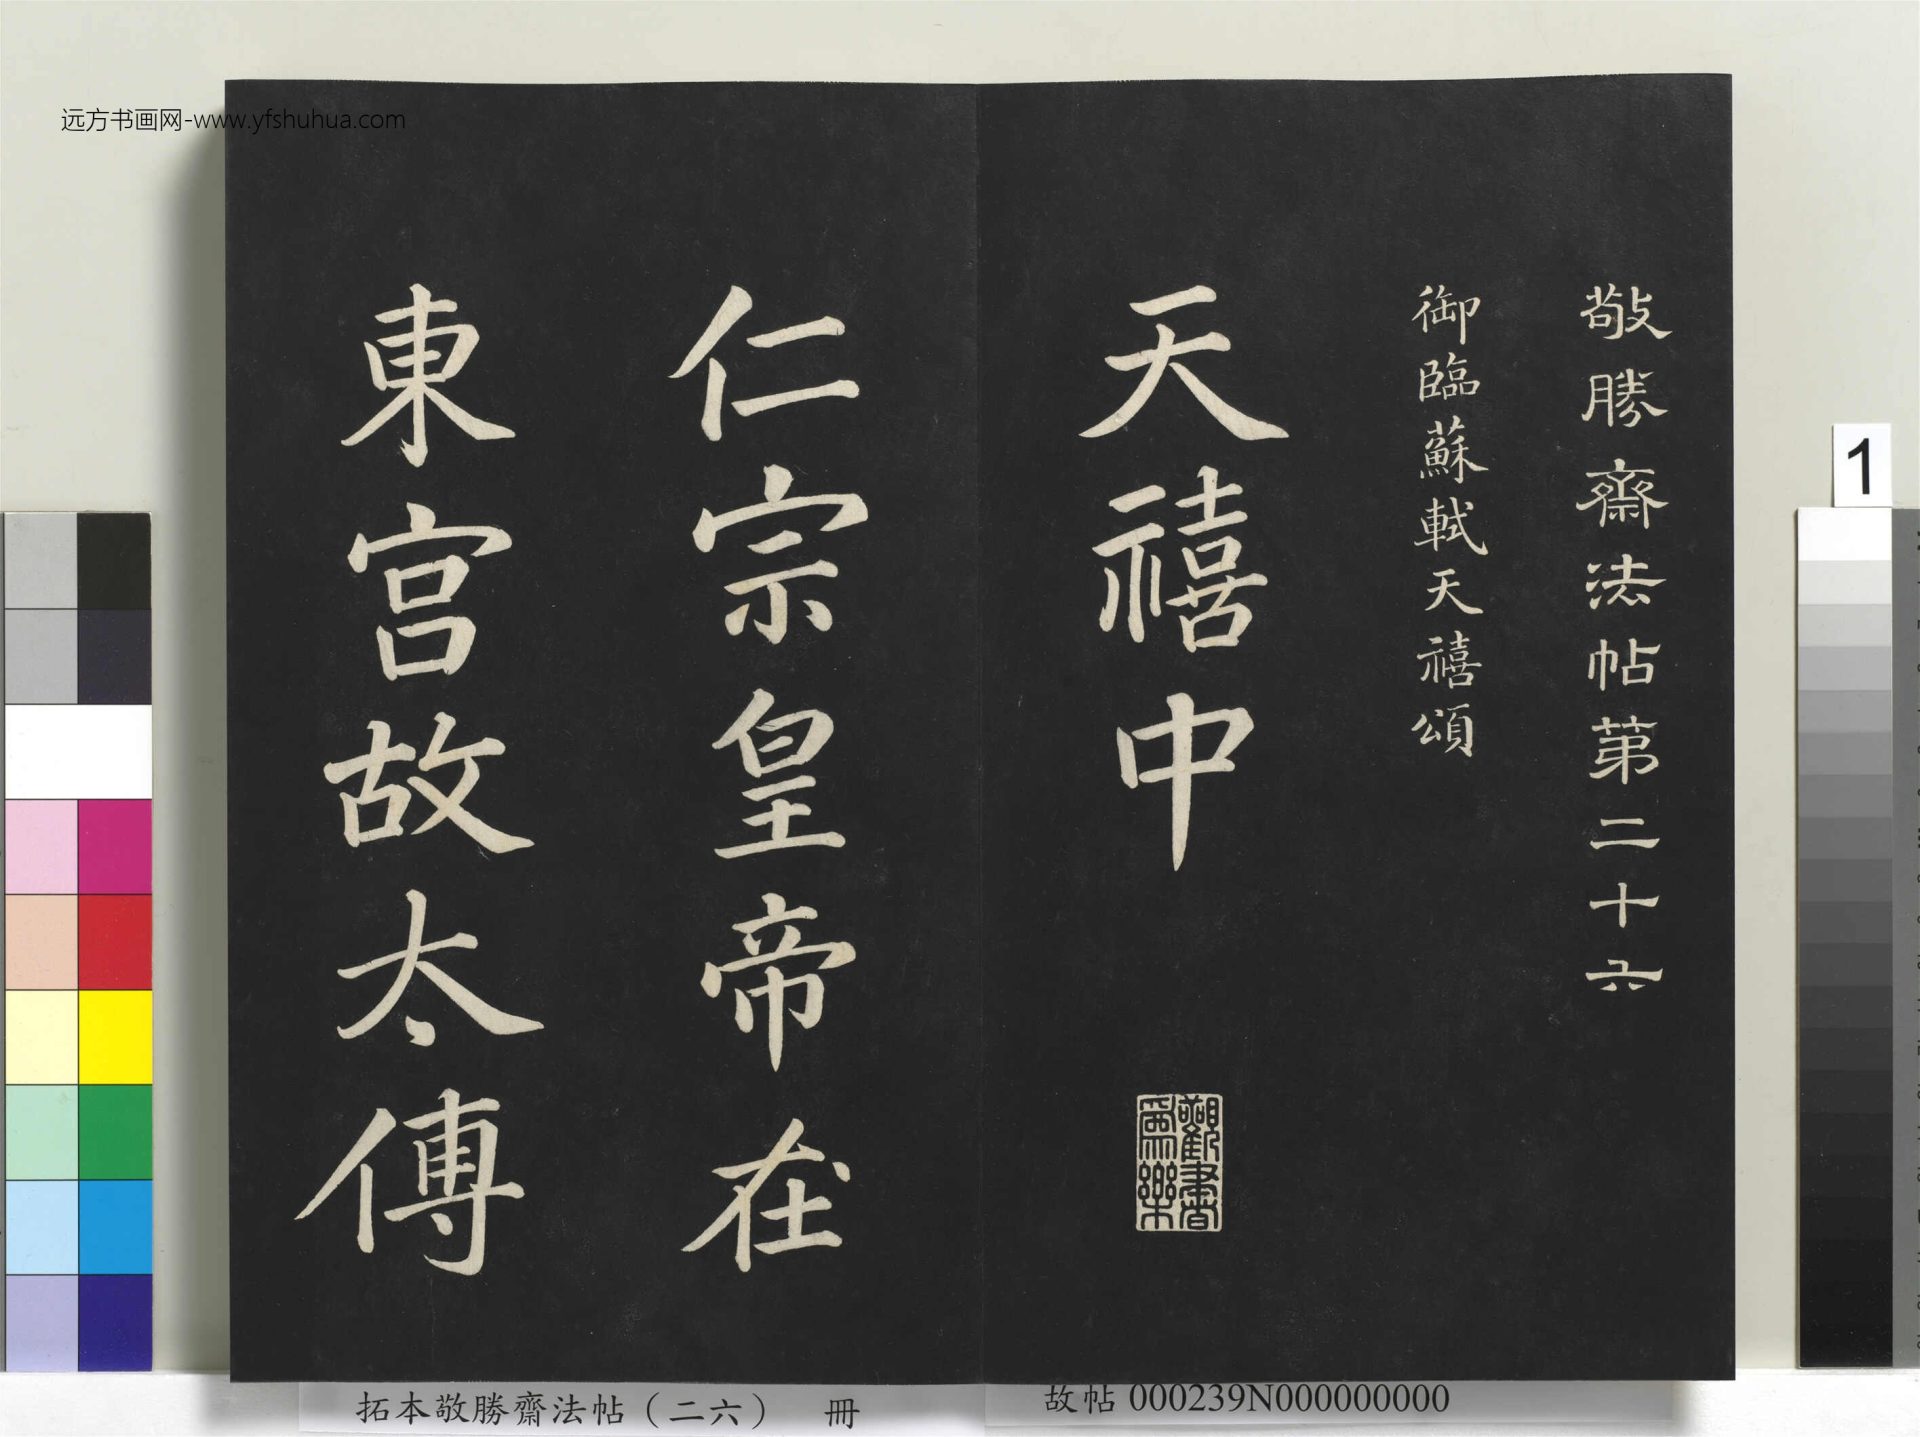 远方书画网-www.yfshuhua.com
敬勝齋法帖第二十六
御臨蘇軾天禧頌
天禧中
觀書
爲樂
仁宗皇帝在
東宮故太傅
1
拓本敬勝齋法帖（二六） 冊
故帖 000239N000000000